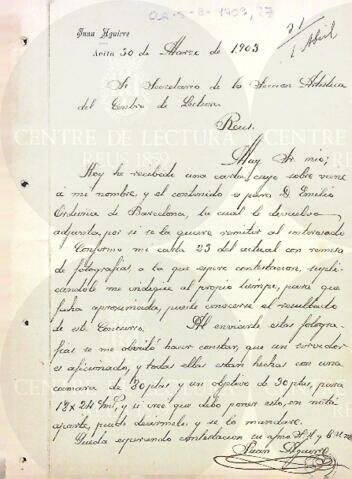 CLR-5-8-1903, 27
31/1 Abril
Juan Aguirre
Avila 30 de Marzo de 1903
Sr Secretario de la Seccion Artistica
del Centro de Lectura
Reus.
CENTRE DE LECTURA
REUS 1859
Muy Sr. mio;
Hoy he recibido una carta cuyo sobre viene
á mi nombre, y el contenido es para D. Emilio
de Barcelona, la cual le devuelvo
adjunta, por si se la quiere remitir al interesado
Conformo mi carta 23 del actual con remesa
de fotografias, a la que espero contestacion, supli-
cándole me indique al propio tiempo, para que
fecha aproximada, puede conocerse el resultado
de este Concurso. Al enviarle estas fotogra-
fias se me olvidó hacer constar, que un servidor
es aficionado, y todas ellas están hechas con una
cámara de 80 ptas y un objetivo de 30 ptas, para
18x24 y si cree que debo poner esto, en nota
aparte, puede decirmelo, y se la mandaré.
Queda esperando contestacion su afmo S. S. q
Juan Aguirre